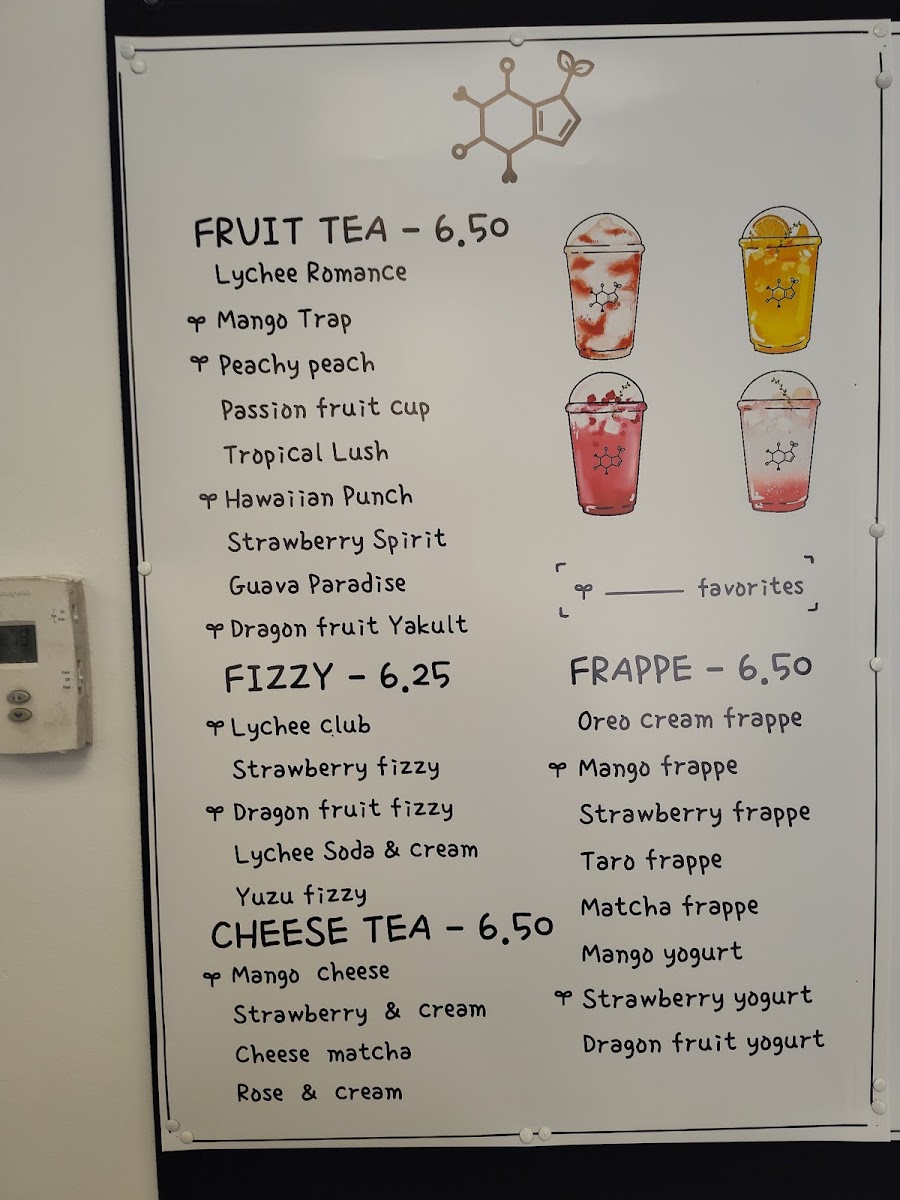 FRUIT TEA - 6.50
Lychee Romance
Mango Trap
Peachy peach
Passion fruit cup
Tropical Lush
Hawaiian Punch
Strawberry Spirit
Guava Paradise
Dragon fruit Yakult
FIZZY - 6.25
Lychee club
Strawberry fizzy
Dragon fruit fizzy
Lychee Soda & cream
Yuzu fizzy
CHEESE TEA - 6.50
Mango cheese
Strawberry & cream
Cheese matcha
Rose & cream
favorites
FRAPPE - 6.50
Oreo cream frappe
Mango frappe
Strawberry frappe
Taro frappe
Matcha frappe
Mango yogurt
Strawberry yogurt
Dragon fruit yogurt